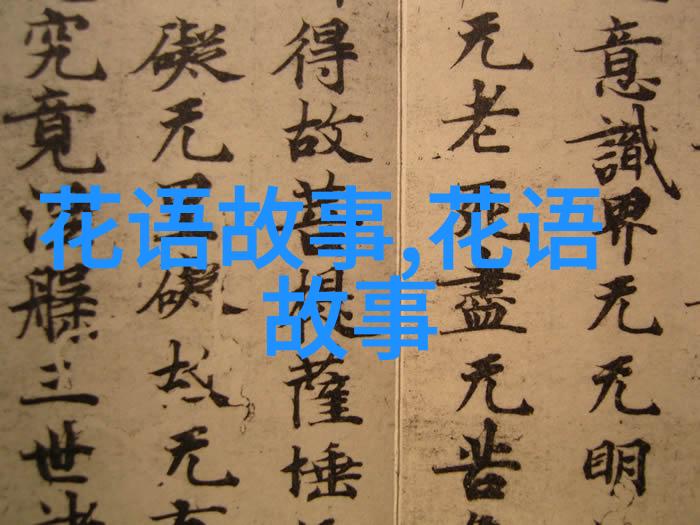 花语故事,花语
故事
意識界无无明
无老死盡无苦
得故菩提薩埵
礙无罣礙故无
究竟涅槃三世諸